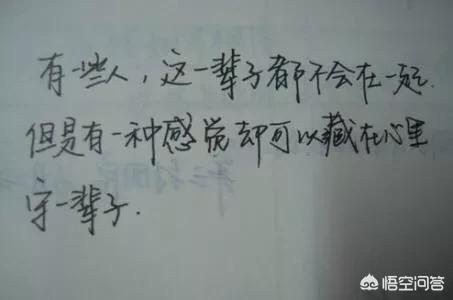 有一些人，这一辈子都不会在一起.
但是有一种感觉却可以藏在心里
守一辈子.
悟空问答